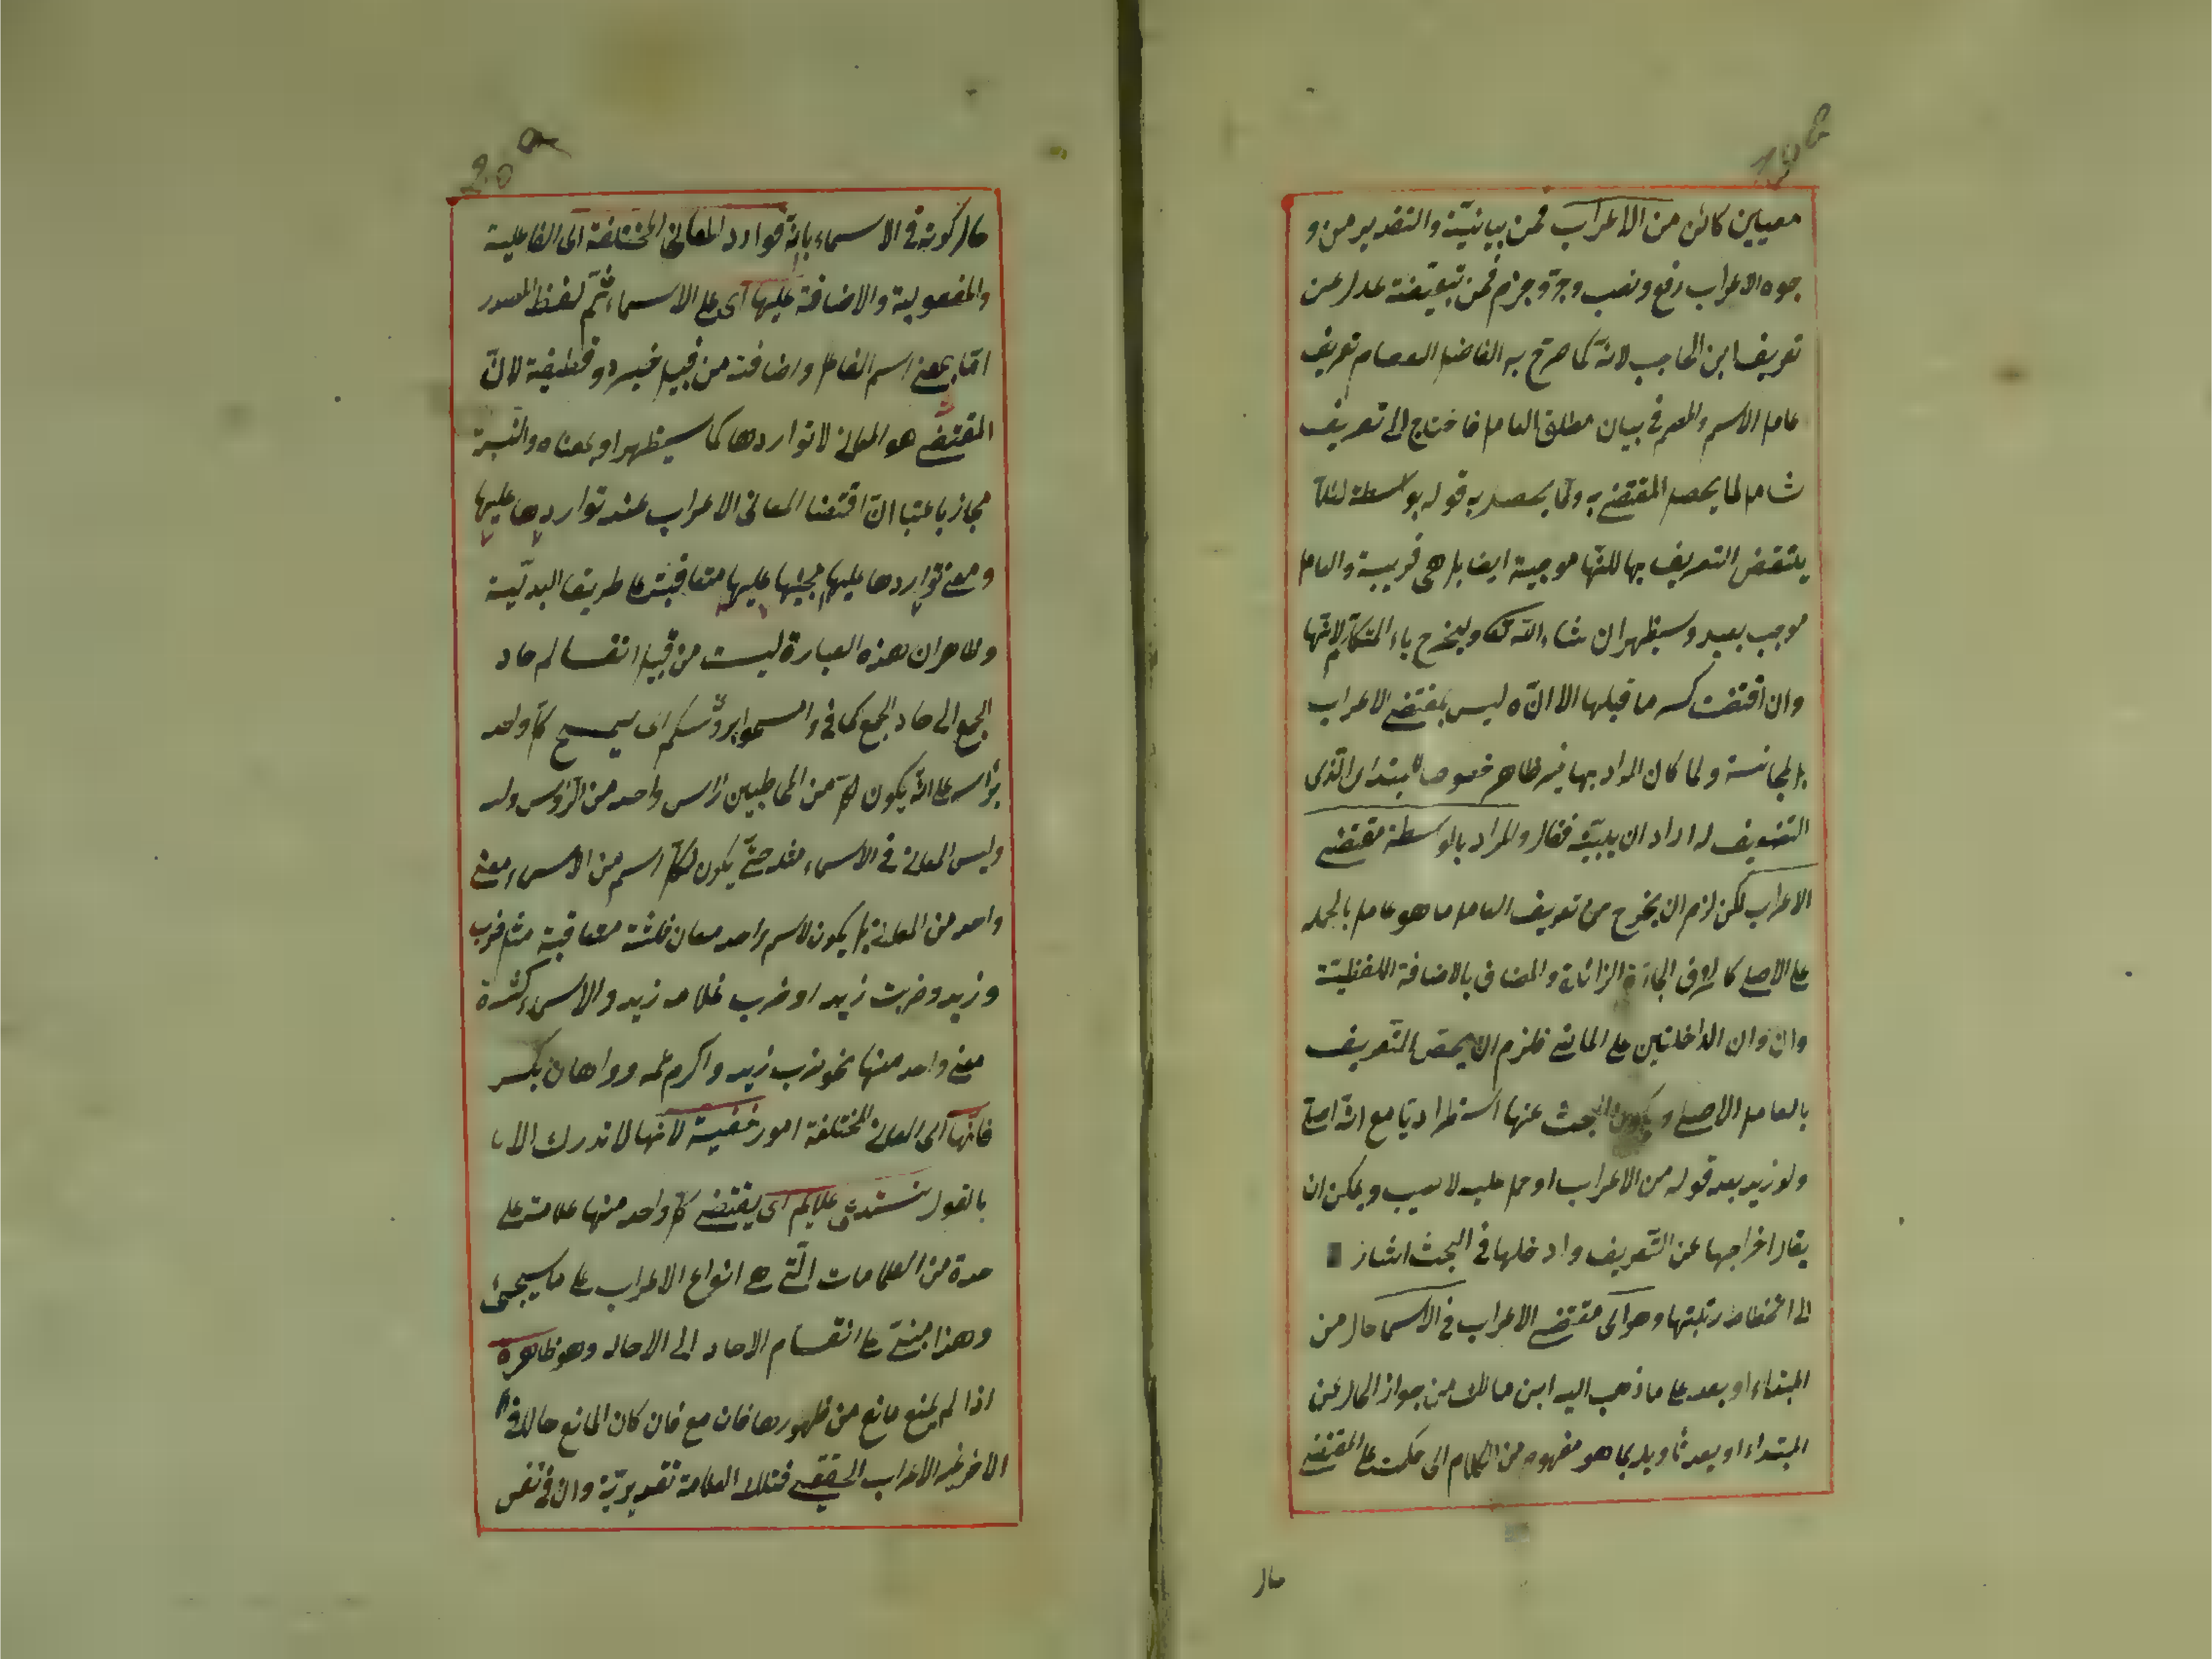 معينين كائن من الاعراب فمن بيانيّة والتقدير من و
جوه الاعراب رفع ونصب وجرّ وجزم فمن تبعيضة عدل عن
تعريف ابن الحاجب لانّه كما صرّح به الفاضل العصام تعريف
عامل الاسم والمصم في بيان مطلق العامل فاحتاج الى تعريف
شامل لما يحصل المقتضى به ولما يحصل به قوله بواسطة لئلّا
ينتقض التعريف بها للنّها موجبة ايضا بل هي قريبة والعامل
موجب بعيد وسيظهر ان شاء اللّه تعا وليخرج ياء المتكلّم لانّها
وان اقتضت كسر ما قبلها الا انّه ليس بمقتضى الاعراب
بل لمجانسة ولما كان المراد بها غير ظاهر خصوصا للمبتدئ الذى
التضعيف له اراد ان يبيّنه فقال والمراد بالواسطة مقتضى
الاعراب لكن لزم ان يخرج من تعريف العامل ما هو عامل بالحمل
على الاصلى كالحروف الجارّة الزائدة والمضاف بالاضافة اللفظيّة
وان وان الداخلتين على الماضى فلزم ان يخصّ التّعريف
بالعامل الاصلى ويكون البحث عنها استطراديّا مع انّه اصلى
ولو زيد بعد قوله من الاعراب او حمل عليه لا نسب ويمكن ان
يقال اخراجها عن التّعريف وادخلها في البحث اشار
الى انحطاط رتبتها وهو اى مقتضى الاعراب في الاسما حال من
المبتداء او بعد على ما ذهب اليه ابن مالك من جواز الحال عن
المبتداء او بعد تأويله بما هو مفهوم من الكلام اى حكمت على المقتضى
حال
حال كونه في الاسماء بانّه توارد المعانى المختلفة اى الفاعلية
والمفعولية والاضافة عليها اى على الاسماء ثمّ لفظ المصدر
امّا بمعنى اسم الفاعل واضافته من قبيل جرد قطيفة لانّ
المقتضى هو المعانى لا تواردها كما سيظهر او بمعناه والنّسبة
مجاز باعتبا انّ اقتضا المعانى الاعراب عند تواردها عليها
ومعنى تواردها عليها مجيئها عليها متعاقبة على طريق البدليّة
وظاهر ان هذه العبارة ليست من قبيل انقسام احاد
الجمع الى احاد الجمع كما في وامسحوا برؤسكم اى ليمسح كلّ واحد
برأسه على انّه يكون لكلّ من المخاطبين رأس واحد من الرّؤس ولد
وليس المعانى في الاسماء مقد حتّى يكون لكلّ اسم من الاسماء معنى
واحد من المعانى بل يكون لاسم واحد معان ثلثة متعاقبة مثل ضرب
و زيد وضربت زيدا وضرب غلامه زيد والاسماء كثرة
معنى واحد منها نحو ضرب زيد واكرم عمرو واهان بكر
فانّها اى المعانى المختلفة امور خفيّة لانّها لا تدرك الا
بالعقول تستدعى علايم اى يقتضى كلّ واحد منها علامة على
حدة من العلامات الّتى هى انواع الاعراب على ما سيجئ
وهذا مبنىّ على انقسام الاحاد الى الاحاد وهو ظاهرة
اذا لم يمنع مانع من ظهورها فان مع فان كان المانع حالا في
الاخر غير الاعراب الحقيقى فتلك العلامة تقديريّة وان في نفس